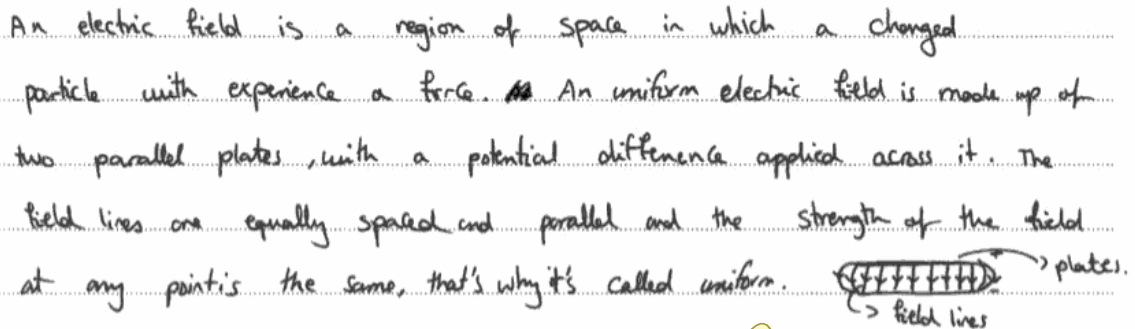 An electric field is a region of space in which a charged
particle with experience a force. An uniform electric field is made up of
two parallel plates, with a potential difference applied across it. The
field lines are equally spaced and parallel and the strength of the field
at any point is the same, that's why it's called uniform.
plates.
field lines